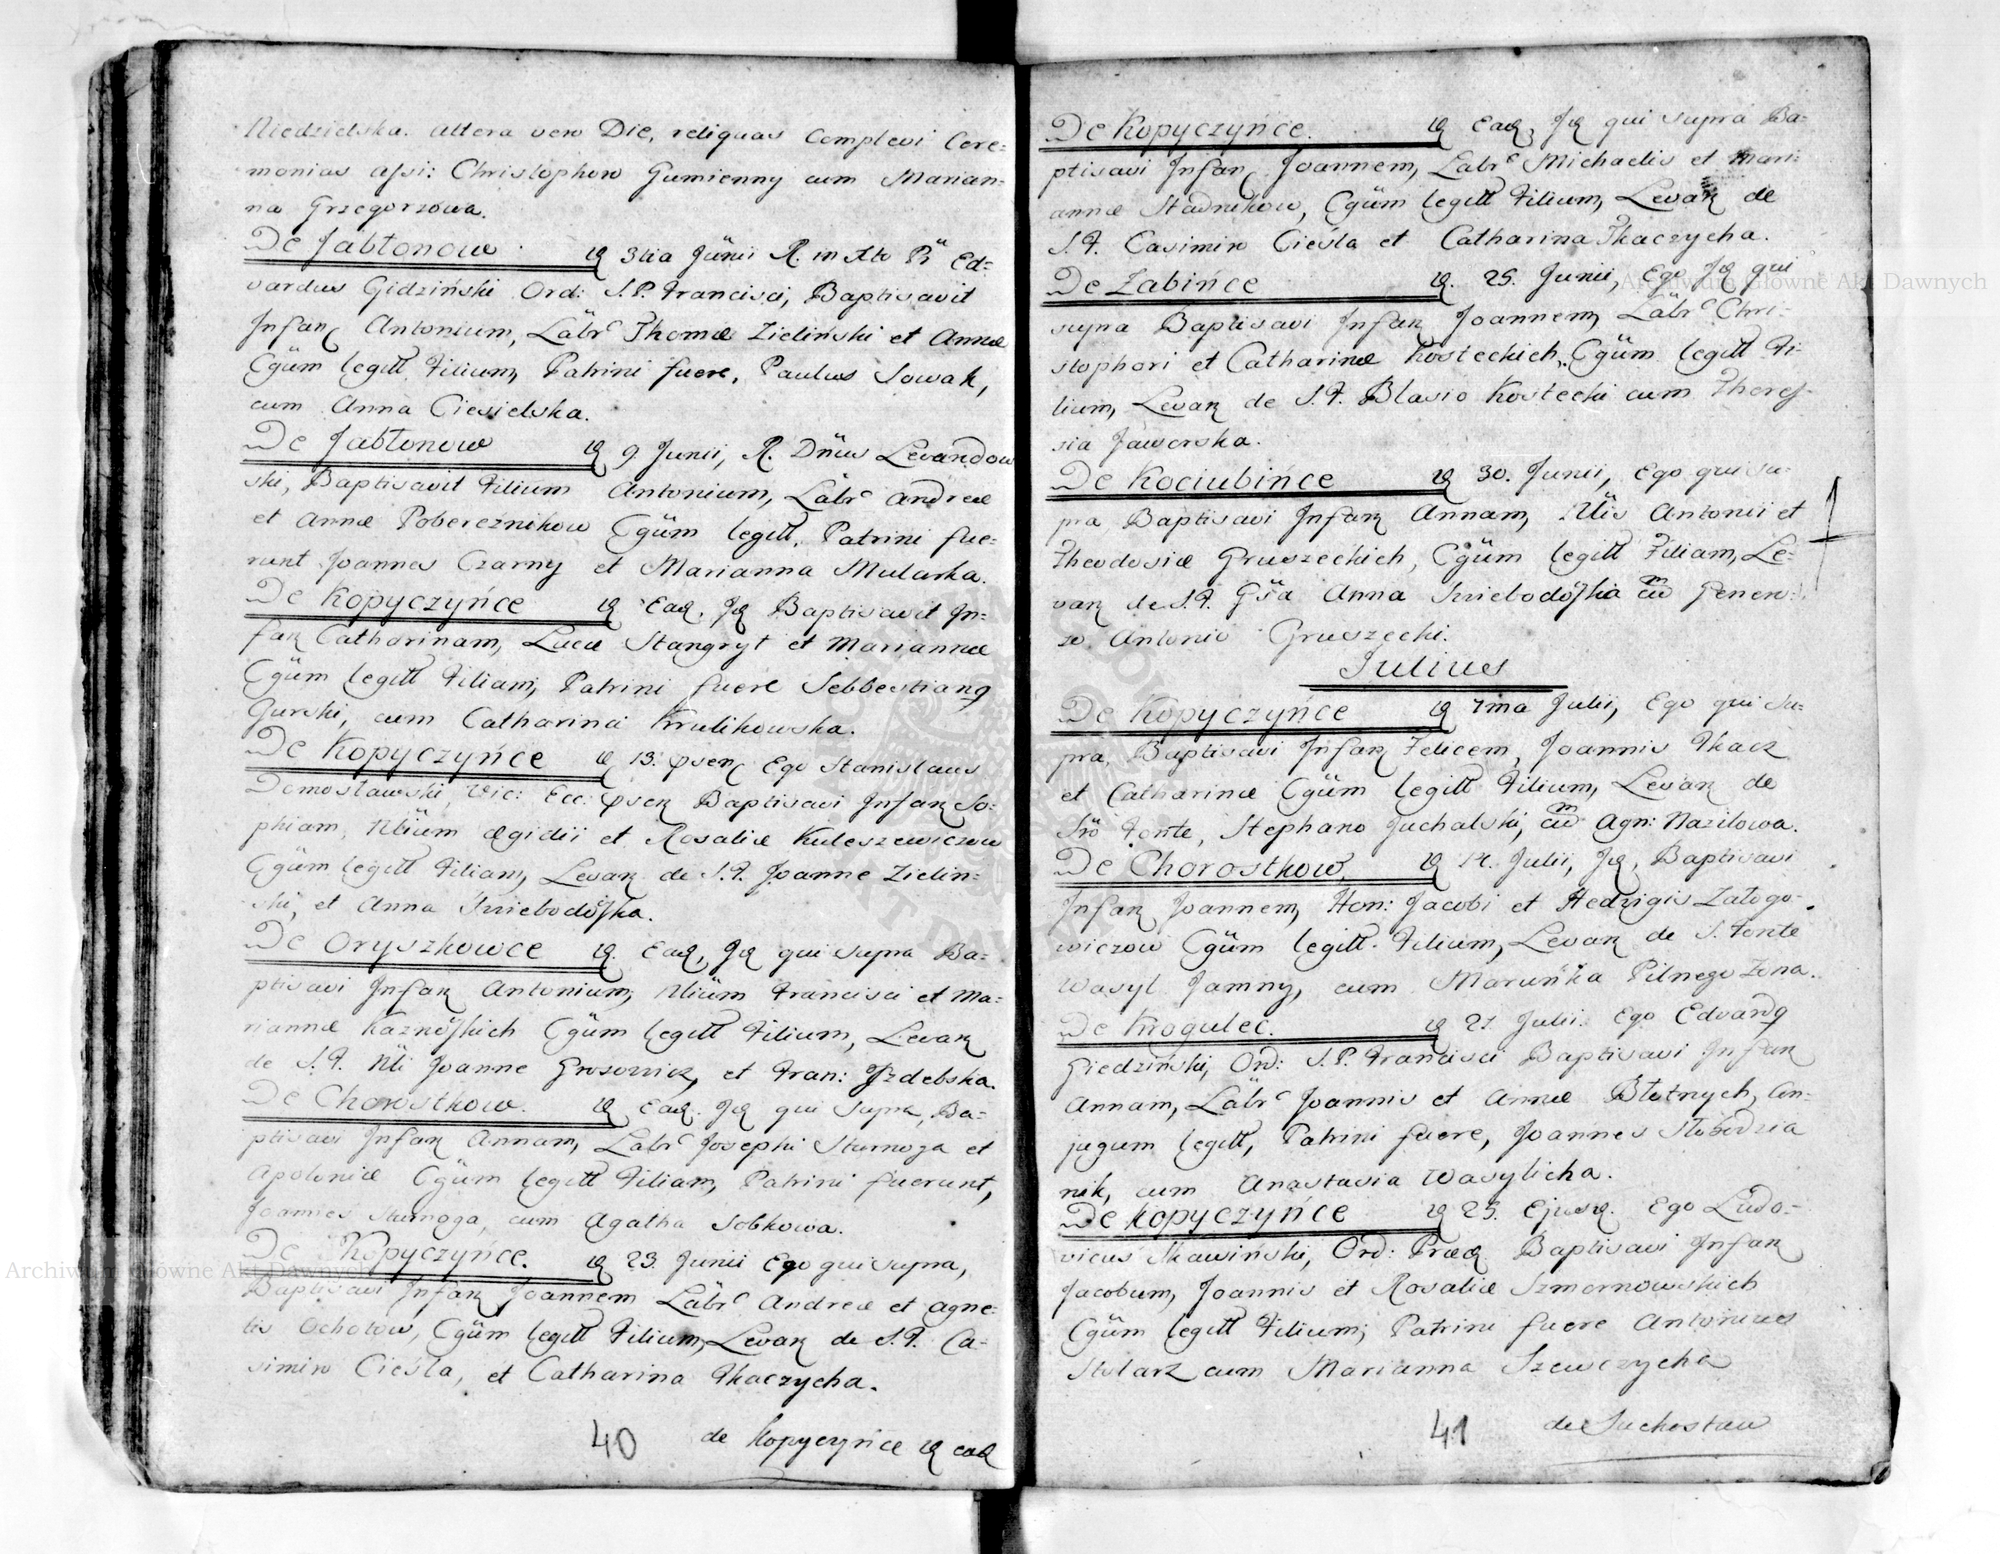 Niedzielska. altera vero Die, reliquas Complevi Cere=
monias assi: Christophoro Gumienny cum Marian=
na Grzegorzowa.
De Jabłonow 3tia Junii R. in Xto Pr Ed=
vardus Gidziński Ord: S. P. Francisci, Baptisavit
Infan Antonium, Labr Thomæ Zieliński et Annæ
Cgum legitt Filium, Patrini fuere, Paulus Sowak,
cum Anna Ciesielska.
De Jabłonow 9 Junii, R. Dnus Levandow
ski, Baptisavit Filium Antonium, Labr Andreæ
et Annæ Pobereznikow Cgum legitt, Patrini fue=
runt Joannes Czarny et Marianna Mularka.
De Kopyczyńce Ead, Id Baptisavit In=
fan Catharinam, Lucæ Stangryt et Mariannæ
Cgum legitt Filiam, Patrini fuere Sebbestian9
Gurski, cum Catharina Krulikowska.
De Kopyczyńce 13. psen Ego Stanislaus
Domosławski, Vic: Ecc: psen Baptisavi Infan So=
phiam, Nlium Ægidii et Rosaliæ Kuleszewiczow
Cgum legitt Filiam, Levan de S. F. Joanne Zielin=
ski, et Anna Swiebodska.
De Oryszkowce Ead, Id qui supra Ba=
ptisavi Infan Antonium, Nlium Francisci et Ma=
riannæ Kaznoskich Cgum legitt Filium, Levan
de S. F. Nli Joanne Grosowicz, et Fran: Izdebska.
De Chorostkow. Ead. Id qui supra, Ba=
ptisavi Infan Annam, Labr Josephi Sturnoga et
Apoloniæ Cgum legitt Filiam, Patrini fuerunt,
Joannes Sturnoga, cum Agatha Sobkowa.
De Kopyczyńce. 23. Junii Ego qui supra,
Baptisavi Infan Joannem Labr Andreæ et Agne=
tis Ochotow, Cgum legitt Filium, Levan de S. F. Ca=
simiro Cieśla, et Catharina Tkaczycha.
40 de Kopyczyńce ead
De Kopyczyńce. Ead, Id qui supra Ba=
ptisavi Infan Joannem, Labr Michaelis et Mari=
annæ Stadnikow, Cgum legitt Filium, Levan de
S. F. Casimiro Cieśla et Catharina Tkaczycha.
De Zabińce 25. Junii, Ego Id qui
supra Baptisavi Infan Joannem, Labr Chri=
stophori et Catharinæ Kosteckich, Cgum legitt Fi=
lium, Levan de S. F. Blasio Kostecki cum There=
sia Jaworska.
De Kociubińce 30. Junii, Ego qui su=
pra Baptisavi Infan Annam, Antonii et
Theodosiæ Gruszeckich, Cgum legitt Filiam, Le=
van de S. F. Anna Swiebodska cu Genero=
so Antonio Gruszecki.
Julius
De Kopyczyńce 7ma Julii, Ego qui su=
pra, Baptisavi Infan Felicem, Joannis Tkacz
et Catharinæ Cgum legitt Filium, Levan de
Sro Fonte, Stephano Juchalski, cu Agn: Nazilowa.
De Chorostkow, 14. Julii, Id, Baptisavi
Infan Joannem, Hon: Jacobi et Hedvigis Zalogo=
wiczow Cgum legitt. Filium, Levan de S. Fonte
Wasyl Jamny, cum Maruńka Pilnego Zona.
De Krogulec. 21. Julii. Ego Edvard9
Giedziński, Ord: S. P. Francisci Baptisavi Infan
Annam, Labr Joannis et Annæ Błotnych, Con=
jugum legitt, Patrini fuere, Joannes Słobodzia
nik, cum Anastasia Wasylicha.
De Kopyczyńce 25. Ejusd. Ego Ludo=
vicus Skawiński, Ord: Præd Baptisavi Infan
Jacobum, Joannis et Rosaliæ Szmornowskich
Cgum legitt Filium, Patrini fuere Antonius
Stolarz cum Marianna Szewczycha
41 de Suchostaw
Archiwum Główne Akt Dawnych
Archiwum Główne Akt Dawnych